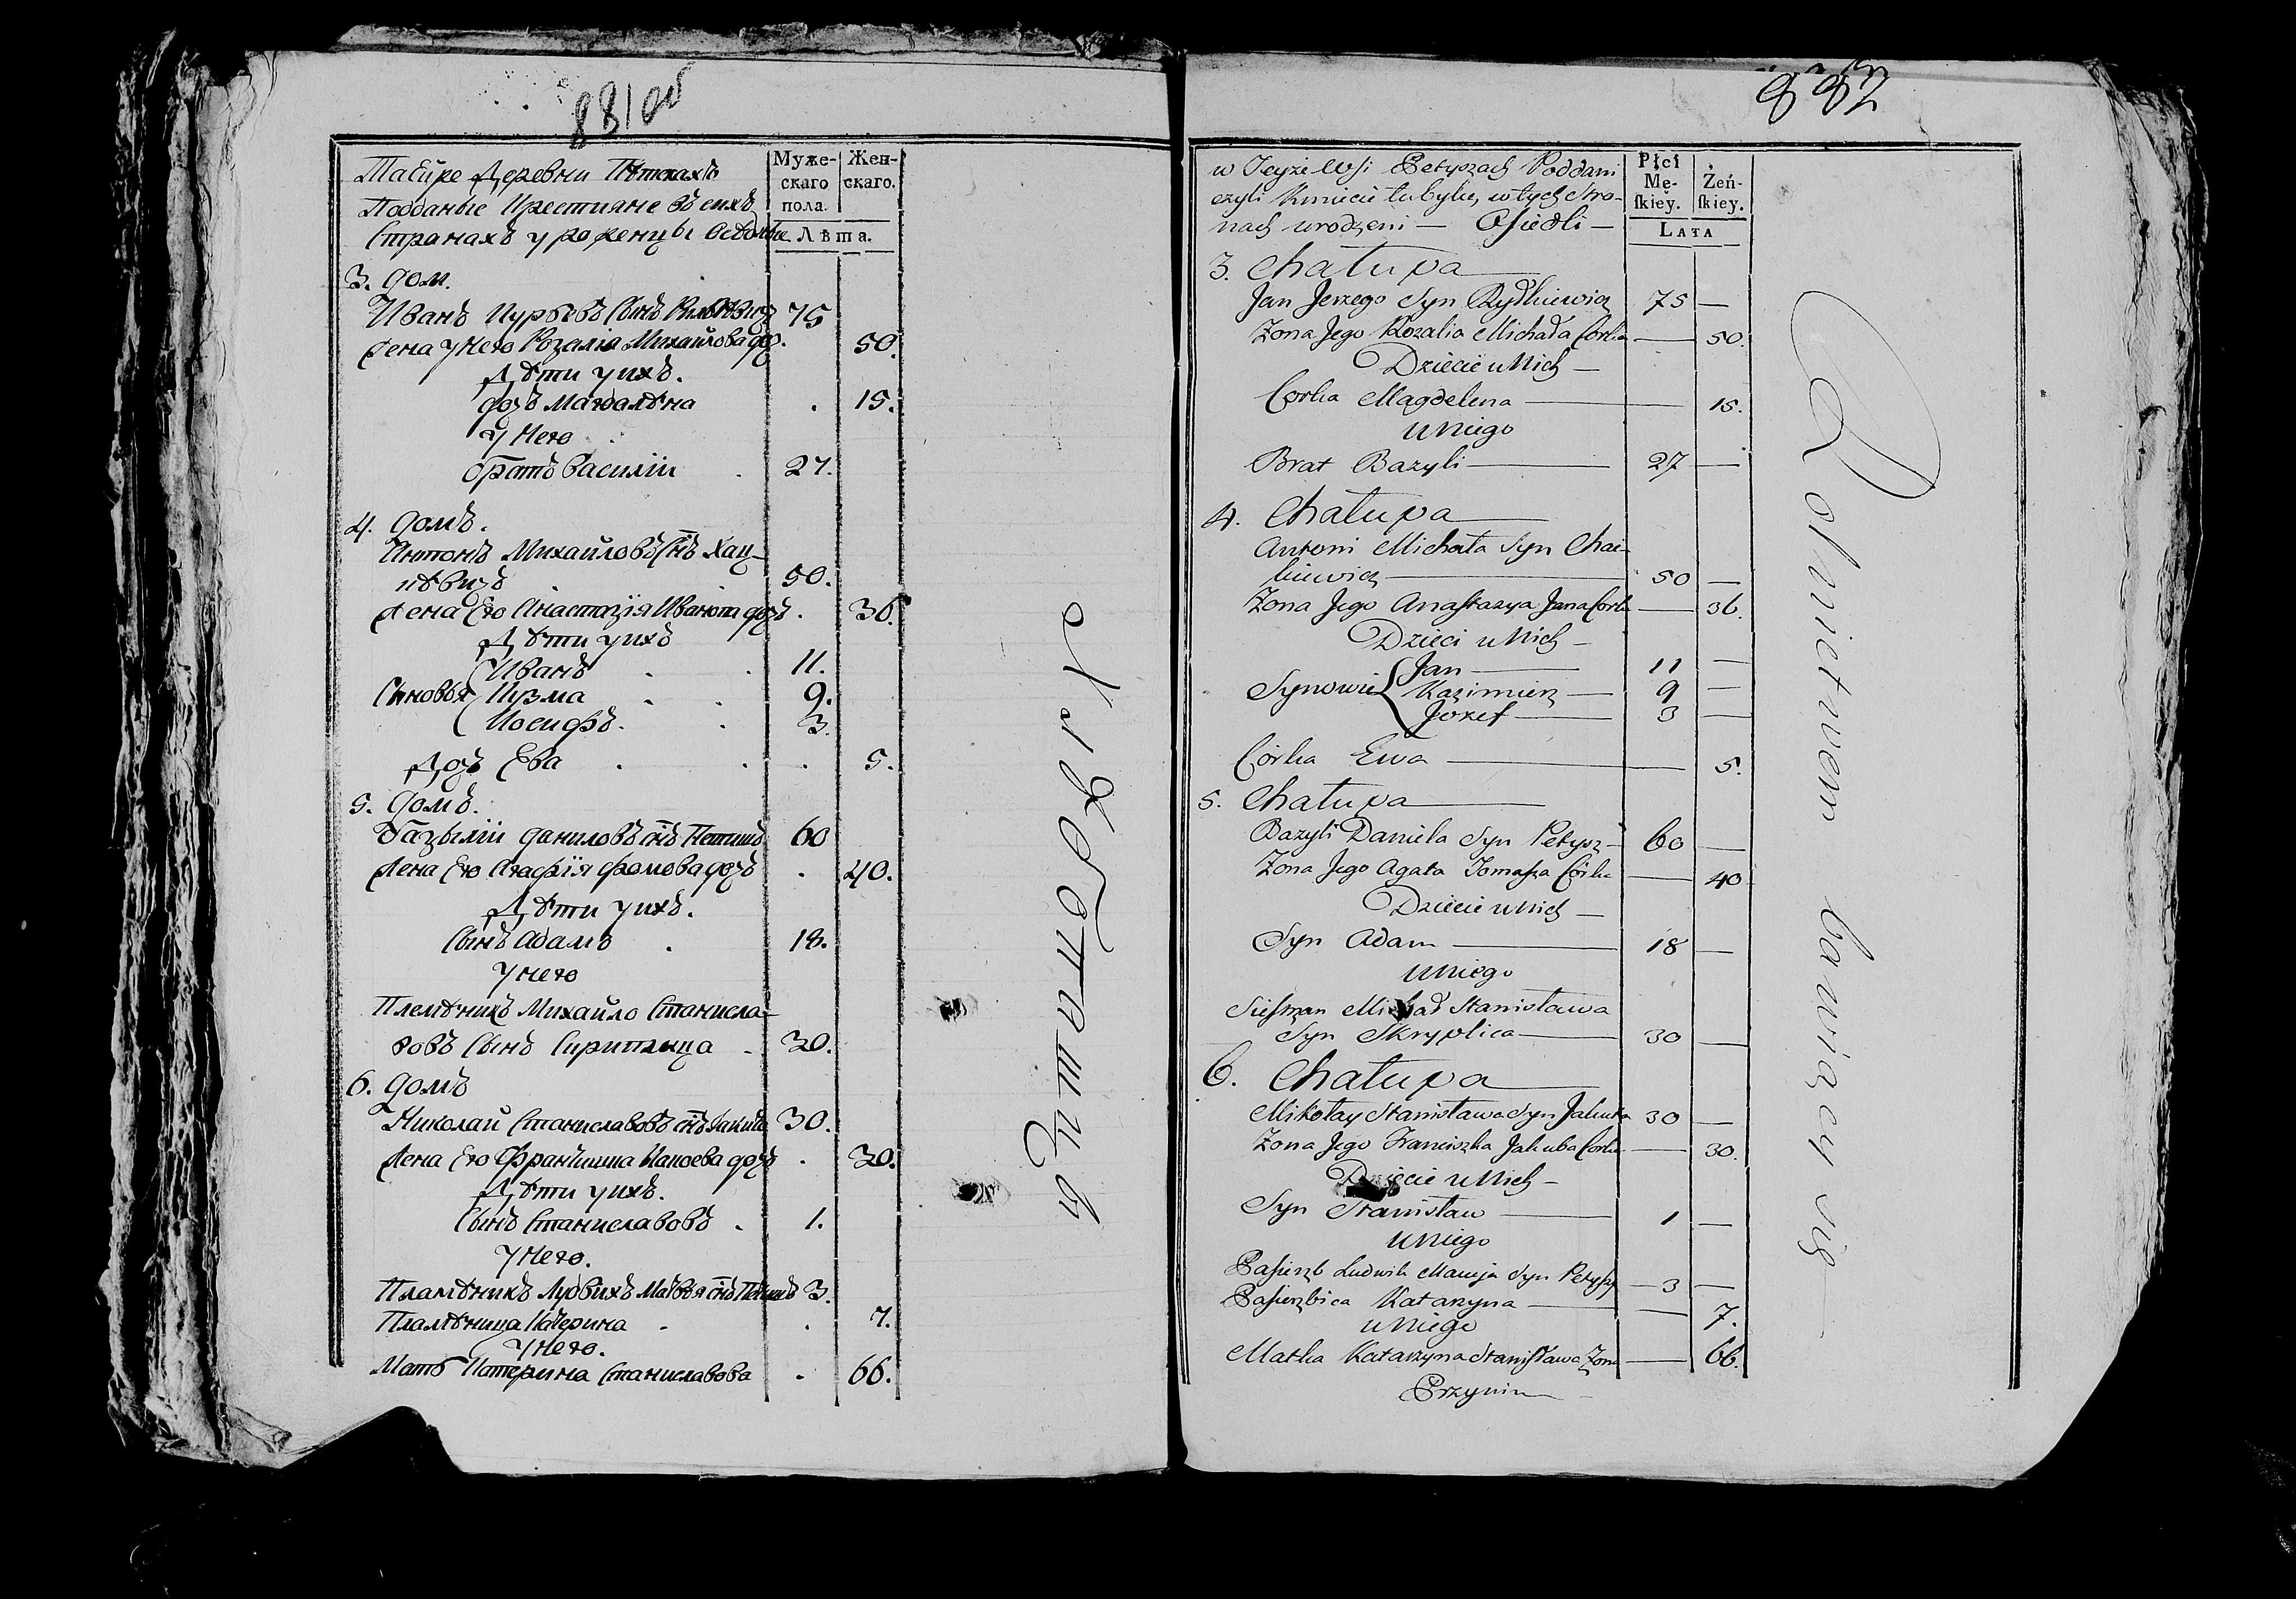 881 об
Тае́жре Деревни Пѣтшахъ
Подданые Крестияне въ сихъ
Странахъ уроженцы
Муже-
скаго
пола.
Жен-
скаго.
Лѣта.
3. Дом.
Иванъ Юрьевъ Сынъ 75
Жена у него Розалія Михайлова доч. 50.
Дѣти у ихъ.
дочъ Магдалѣна 15.
у него
братъ Василій 27.
4. Домъ.
Антонъ Михайловъ Снъ Хац-
кѣвичъ 50.
Жена Его Анастазія Иванова дочъ 36.
Дѣти у ихъ
Иванъ 11.
Сыновья Кузма 9.
Иосифъ. 3.
Дочъ Ева 5.
5. Домъ.
Базылій Даниловъ снъ Петишъ 60
Жена Его Агафія Фомова дочъ 40.
Дѣти у ихъ.
Сынъ Адамъ 18.
у него
Племѣникъ Михайло Станисла-
вовъ Сынъ Скриплица 30.
6. Домъ
Николай Станиславовъ снъ 30.
Жена Его Франъцишка дочъ 30.
Дѣти у ихъ.
Сынъ Станиславовъ 1.
у него.
Пламѣникъ Лудвихъ снъ 3.
Пламѣница Катерина 7.
у него.
Мать Катерина Станиславова 66.
882
w Teyże Wsi Petyszach Poddani
czyli Kmiecie tubylcy, w tych Stro-
nach urodzeni — Osiedli —
Płci
Mę-
skiey.
Żeń-
skiey.
Lata
3. Chałupa
Jan Jerzego Syn Rydkiewicz 75 —
Żona Jego Rozalia Michała Corka — 50.
Dziecie u Nich —
Corka Magdelena — 15.
u Niego
Brat Bazyli — 27 —
4. Chałupa
Antoni Michała Syn Chac-
kiewicz — 50 —
Żona Jego Anastazya Jana Corka — 36.
Dzieci u Nich —
Jan — 11 —
Synowie Kazimierz — 9 —
Jozef — 3 —
Córka Ewa — 5.
5. Chałupa
Bazyli Daniela Syn Petysz — 60 —
Żona Jego Agata Tomasza Córka — 40
Dziecie u Nich —
Syn Adam — 18 —
u Niego
Siestrzan Michał Stanisława
Syn Skryplica — 30 —
6. Chałupa
Mikołay Stanisława Syn Jakuta 30 —
Żona Jego Franciszka Jakuba Corka — 30.
Dziecie u Nich —
Syn Stanisław — 1 —
u Niego
Pasierzb Ludwik Macieja Syn Petysz — 3 —
Pasierzbica Katarzyna — 7.
u Niego
Matka Katarzyna Stanisława Żona — 66.
Przynim
Rolnictwem bawiący się